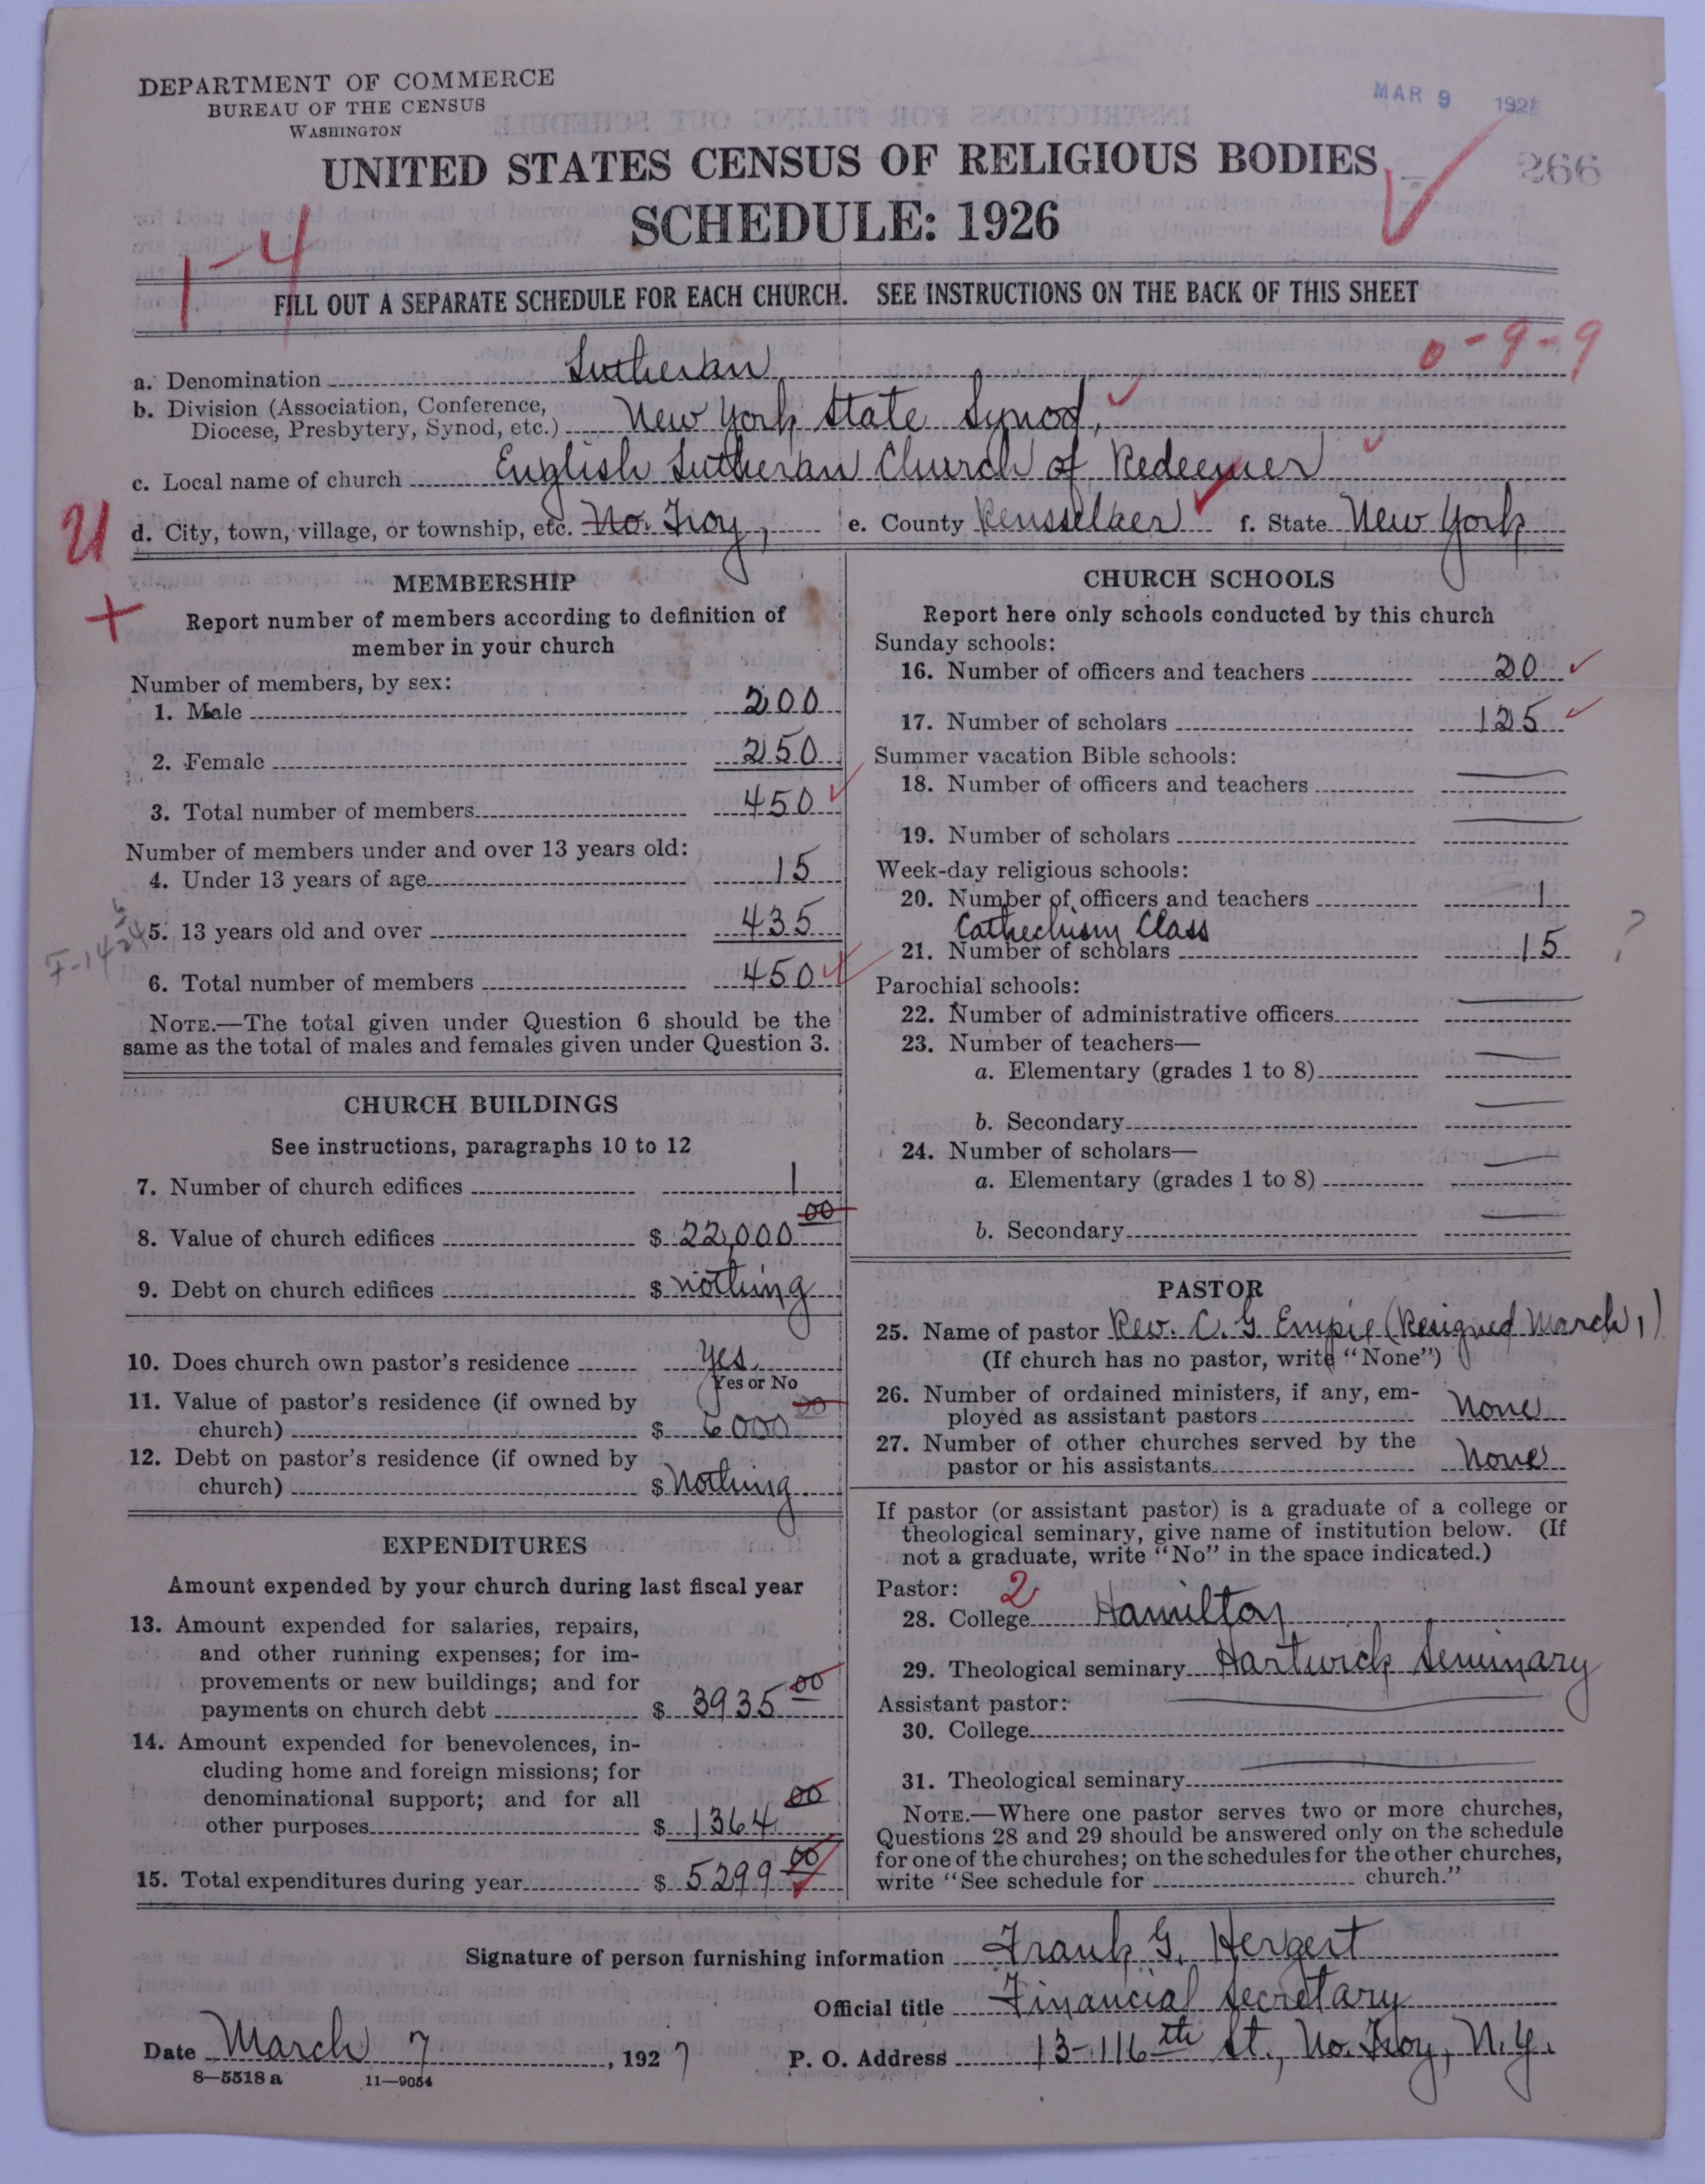 DEPARTMENT OF COMMERCE
BUREAU OF THE CENSUS
WASHINGTON
MAR 9 192
266
UNITED STATES CENSUS OF RELIGIOUS BODIES
SCHEDULE: 1926
1-4
FILL OUT A SEPARATE SCHEDULE FOR EACH CHURCH. SEE INSTRUCTIONS ON THE BACK OF THIS SHEET
0-9-9
a. Denomination Lutheran
b. Division (Association, Conference, Diocese, Presbytery, Synod, etc.) New York State Synod,
c. Local name of church English Lutheran Church of Redeemer
d. City, town, village, or township, etc. No. Troy, e. County Rensselaer f. State New York
U
+
MEMBERSHIP
Report number of members according to definition of
member in your church
Number of members, by sex:
1. Male 200
2. Female 250
3. Total number of members 450
Number of members under and over 13 years old:
4. Under 13 years of age 15
5. 13 years old and over 435
6. Total number of members 450
NOTE.—The total given under Question 6 should be the
same as the total of males and females given under Question 3.
CHURCH BUILDINGS
See instructions, paragraphs 10 to 12
7. Number of church edifices 1
8. Value of church edifices $ 22,000 00
9. Debt on church edifices $ nothing
10. Does church own pastor's residence Yes
Yes or No
11. Value of pastor's residence (if owned by
church) $ 6000 00
12. Debt on pastor's residence (if owned by
church) $ Nothing.
EXPENDITURES
Amount expended by your church during last fiscal year
13. Amount expended for salaries, repairs,
and other running expenses; for im-
provements or new buildings; and for
payments on church debt $ 3935 00
14. Amount expended for benevolences, in-
cluding home and foreign missions; for
denominational support; and for all
other purposes $ 1364 00
15. Total expenditures during year $ 5299 00
CHURCH SCHOOLS
Report here only schools conducted by this church
Sunday schools:
16. Number of officers and teachers 20
17. Number of scholars 125
Summer vacation Bible schools:
18. Number of officers and teachers
19. Number of scholars
Week-day religious schools:
20. Number of officers and teachers 1
Cathechism Class
21. Number of scholars 15
?
Parochial schools:
22. Number of administrative officers
23. Number of teachers—
a. Elementary (grades 1 to 8)
b. Secondary
24. Number of scholars—
a. Elementary (grades 1 to 8)
b. Secondary
PASTOR
25. Name of pastor Rev. C. G. Empie (Resigned March 1)
(If church has no pastor, write "None")
26. Number of ordained ministers, if any, em-
ployed as assistant pastors None
27. Number of other churches served by the
pastor or his assistants None
If pastor (or assistant pastor) is a graduate of a college or
theological seminary, give name of institution below. (If
not a graduate, write "No" in the space indicated.)
Pastor: 2
28. College Hamilton
29. Theological seminary Hartwick Seminary
Assistant pastor:
30. College
31. Theological seminary
NOTE.—Where one pastor serves two or more churches,
Questions 28 and 29 should be answered only on the schedule
for one of the churches; on the schedules for the other churches,
write "See schedule for church."
Signature of person furnishing information Frank G. Hergert
Official title Financial Secretary
Date March 7, 1927 P. O. Address 13-116th St., No. Troy, N.Y.
8—5518 a 11—9054